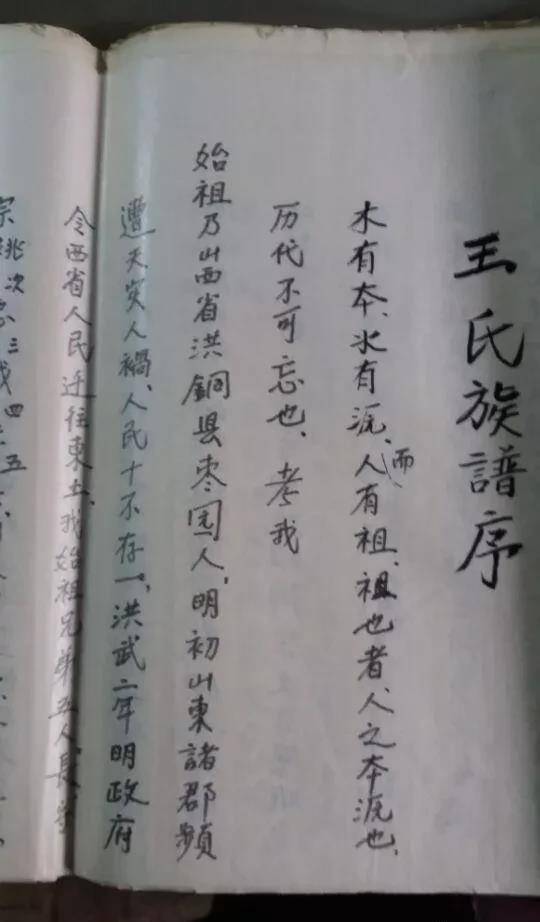 王氏族譜序
木有本、水有源、人而有祖、祖也者、人之本源也、
历代不可忘也、考我
始祖乃山西省洪銅县枣园人，明初山東諸郡頻
遭天灾人禍、人民十不存一，洪武二年明政府
令西省人民迁往東土、我始祖兄弟五人，長
宗祧次 三 四 五